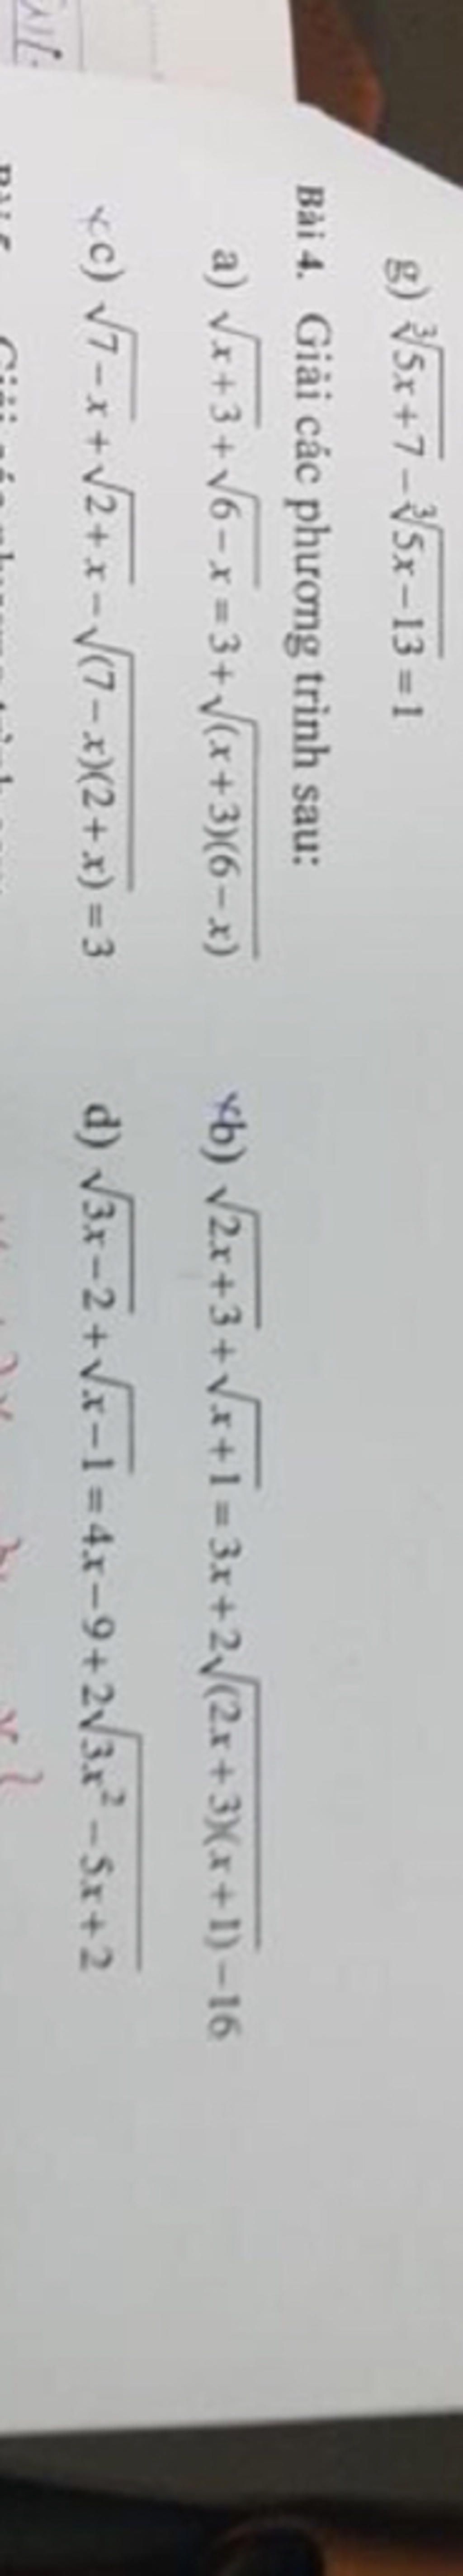 g) ∛(5x+7) − ∛(5x−13) = 1
Bài 4. Giải các phương trình sau:
a) √(x+3) + √(6−x) = 3 + √((x+3)(6−x)) b) √(2x+3) + √(x+1) = 3x + 2√((2x+3)(x+1)) − 16
c) √(7−x) + √(2+x) − √((7−x)(2+x)) = 3 d) √(3x−2) + √(x−1) = 4x − 9 + 2√(3x²−5x+2)